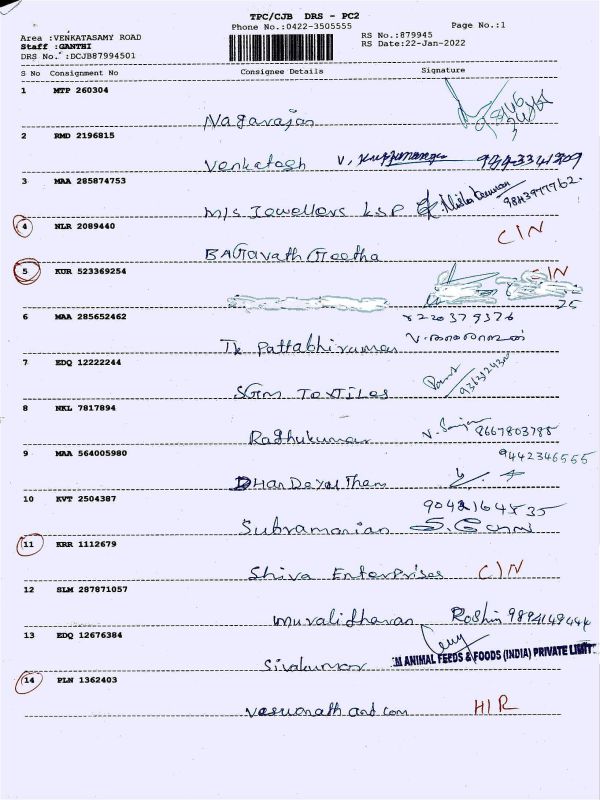 TPC/CJB DRS - PC2
Phone No.:0422-3505555
Page No.:1
Area :VENKATASAMY ROAD
RS No.:879945
Staff :GANTHI
RS Date:22-Jan-2022
DRS No. :DCJB87994501
S No Consignment No Consignee Details Signature
1 MTP 260304
Nagarajan
2 RMD 2196815
Venkatesh V.
3 MAA 285874753
M/s Jewellers LSP 9843977762.
4 NLR 2089440
C/N
BAGavath Geetha
5 KUR 523369254
C/N
6 MAA 285652462
8220379376
TK Pattabhiraman
7 EDQ 12222244
SGM TEXTILES
8 NKL 7817894
Raghukumar 8667803785
9 MAA 564005980
9442346555
DHanDeyuTham
10 KVT 2504387
9042164835
Subramanian
11 KRR 1112679
Shiva Enterprises C/N
12 SLM 287871057
muralidharan Roshin
13 EDQ 12676384
Sivakumar
M ANIMAL FEEDS & FOODS (INDIA) PRIVATE LIMIT
14 PLN 1362403
HIR